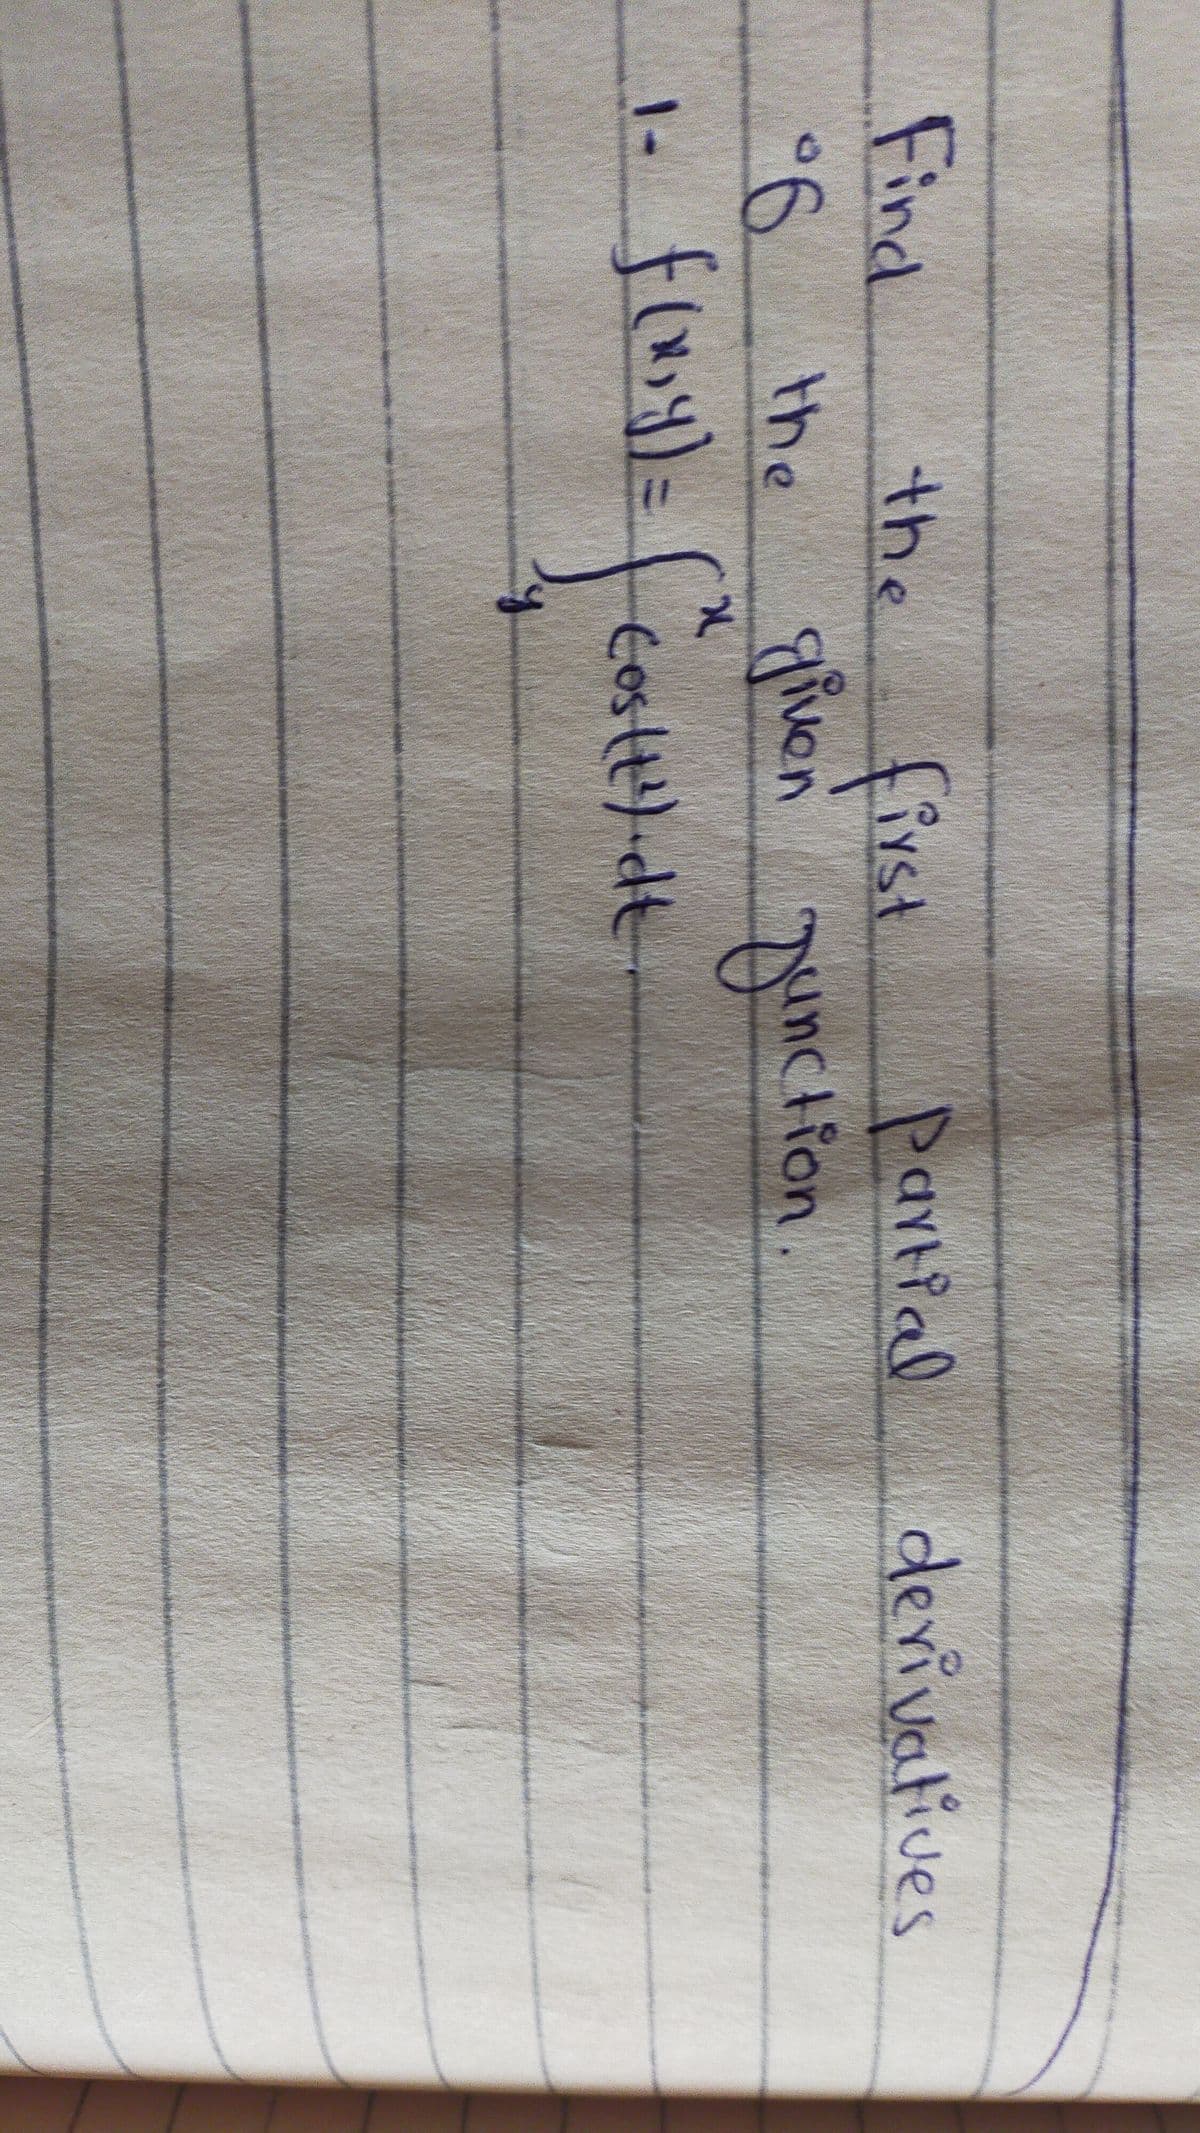 Find the first partial derivatives
of the given function.
1- f(x,y) = ∫_y^x cos(t²).dt.